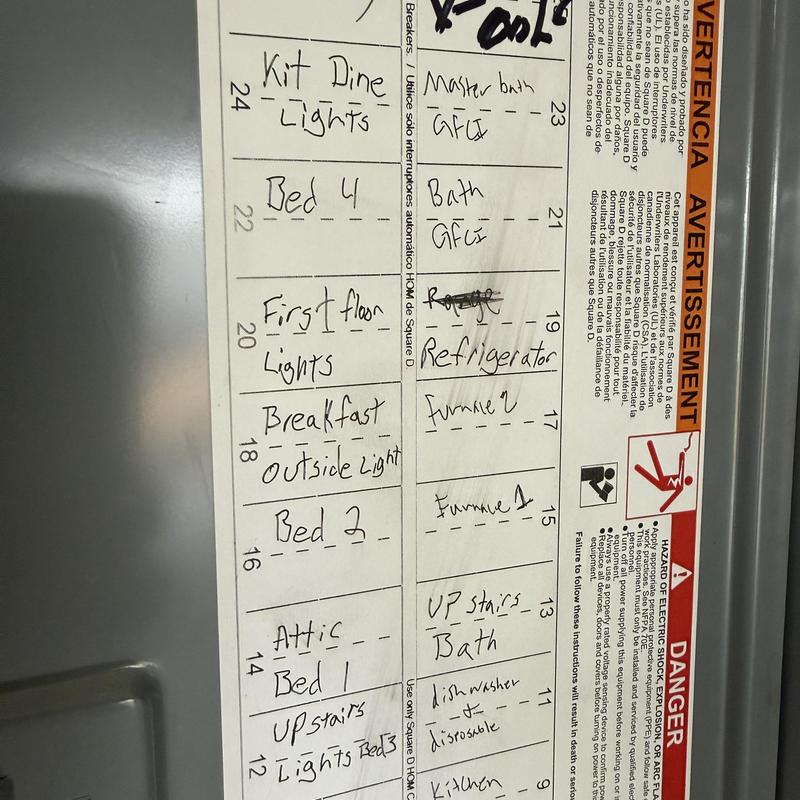 Kit Dine
Lights
24
Master bath
GFCI
23
Bed 4
22
Bath
GFCI
21
First floor
Lights
20
Refrigerator
19
Breakfast
outside Light
18
Furnace 2
17
Bed 2
16
Furnace 1
15
Attic
Bed 1
14
UP stairs
Bath
13
UPstairs
Lights Bed3
12
dishwasher
&
disposable
11
Kitchen
9
Breakers. / Utilice sólo interruptores automático HOM de Square D.
Use only Square D HOM C
VERTENCIA
o ha sido diseñado y probado por
supera las normas de nivel de
o establecidas por Underwriters
s (UL). El uso de interruptores
que no sean de Square D puede
ativamente la seguridad del usuario y
confiabilidad del equipo. Square D
esponsabilidad alguna por daños,
uncionamiento inadecuado del
ado por el uso o desperfectos de
automáticos que no sean de
AVERTISSEMENT
Cet appareil est conçu et vérifié par Square D à des
niveaux de rendement supérieurs aux normes de
l'Underwriters Laboratories (UL) et de l'association
canadienne de normalisation (CSA). L'utilisation de
disjoncteurs autres que Square D risque d'affecter la
sécurité de l'utilisateur et la fiabilité du matériel.
Square D rejette toute responsabilité pour tout
dommage, blessure ou mauvais fonctionnement
résultant de l'utilisation ou de la défaillance de
disjoncteurs autres que Square D.
DANGER
HAZARD OF ELECTRIC SHOCK, EXPLOSION, OR ARC FLA
● Apply appropriate personal protective equipment (PPE) and follow safe
work practices. See NFPA 70E.
● This equipment must only be installed and serviced by qualified elec
personnel.
● Turn off all power supplying this equipment before working on or i
equipment.
● Always use a properly rated voltage sensing device to confirm pow
● Replace all devices, doors and covers before turning on power to thi
equipment.
Failure to follow these instructions will result in death or seriou